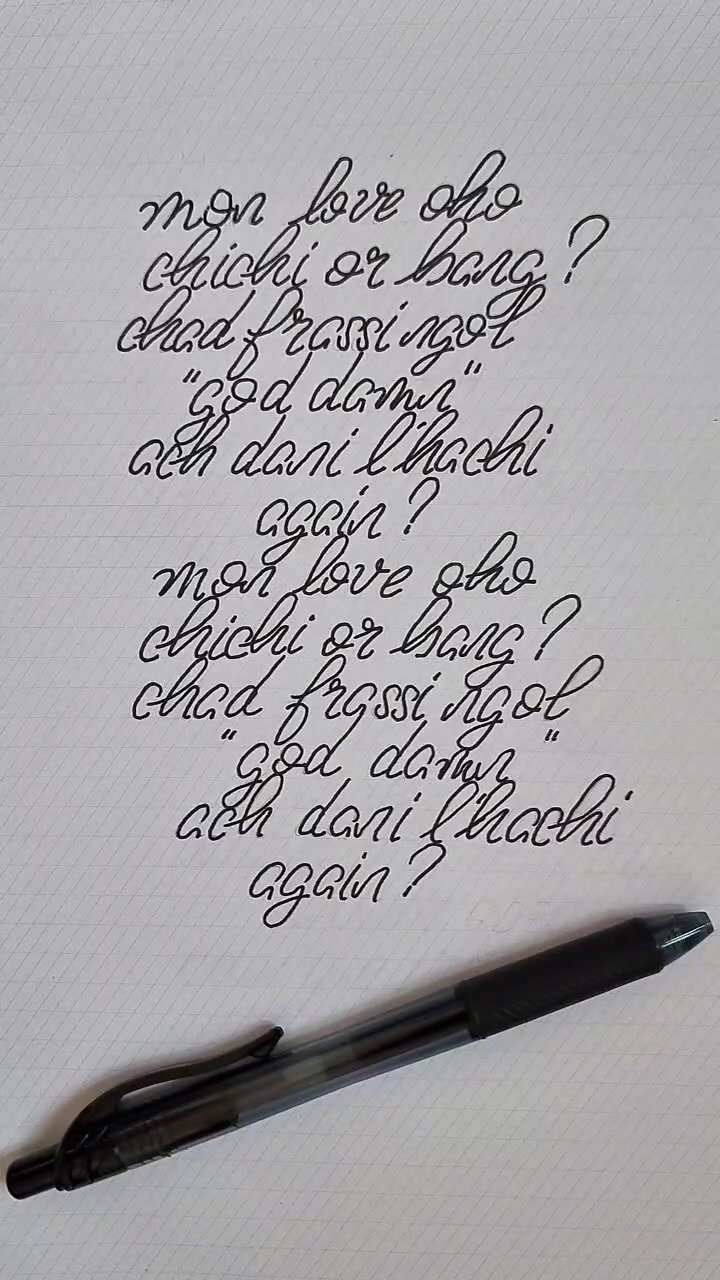 mon love oho
chichi or bang?
chad frassingol
"god damn"
ach dani l'hachi
again?
mon love oho
chichi or bang?
chad frassingol
"god damn"
ach dani l'hachi
again?